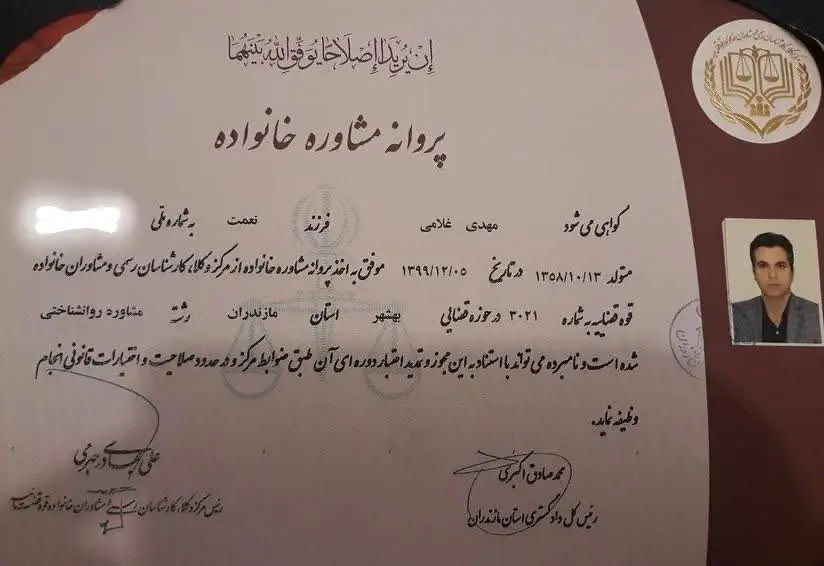 إن یریدا إصلاحا یوفق الله بینهما
پروانه مشاوره خانواده
گواهی می شود مهدی غلامی فرزند نعمت به شماره ملی
متولد ۱۳۵۸/۱۰/۱۳ در تاریخ ۱۳۹۹/۱۲/۰۵ موفق به اخذ پروانه مشاوره خانواده از مرکز وکلا، کارشناسان رسمی و مشاوران خانواده
قوه قضاییه به شماره ۳۰۲۱ در حوزه قضایی بهشهر استان مازندران رشته مشاوره روانشناختی
شده است و نامبرده می تواند با استناد به این مجوز و تمدید اعتبار دوره ای آن طبق ضوابط مرکز و در حدود صلاحیت و اختیارات قانونی انجام
وظیفه نماید.
محمد صادق اکبری
رئیس کل دادگستری استان مازندران
علی بهادری جهرمی
رئیس مرکز وکلا، کارشناسان رسمی و مشاوران خانواده قوه قضاییه